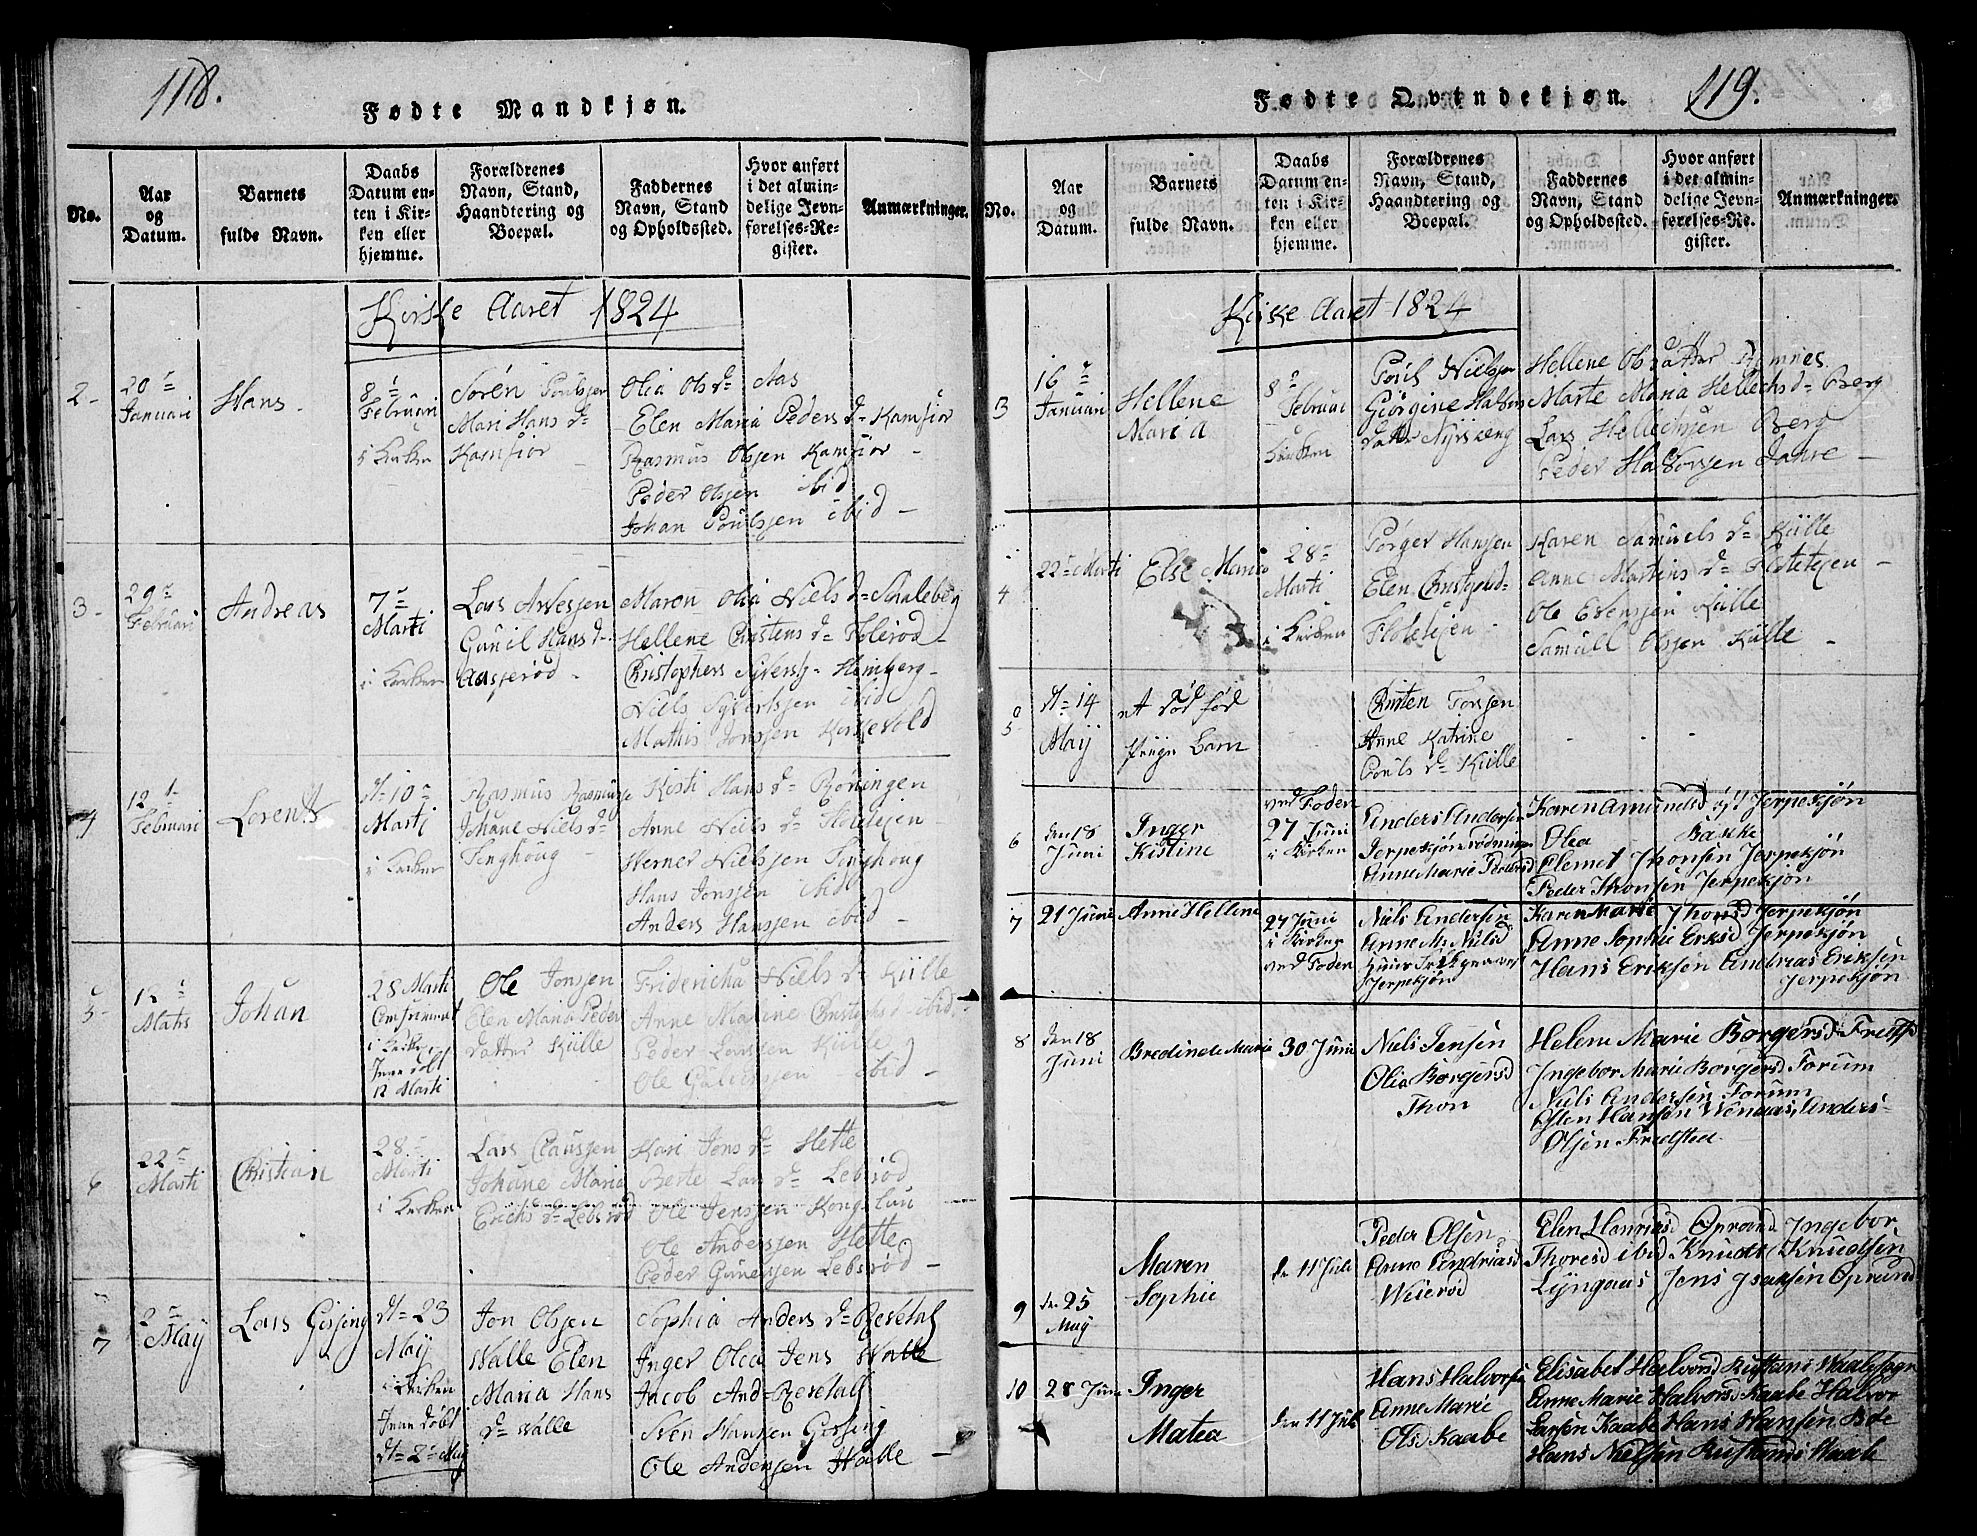 118.
Fødte Mandkjøn.
No.
Aar
og
Datum.
Barnets
fulde Navn.
Daabs
Datum en-
ten i Kir-
ken eller
hjemme.
Forældrenes
Navn, Stand,
Haandtering og
Boepæl.
Faddernes
Navn, Stand
og Opholdssted.
Hvor anført
i det almin-
delige Jevn-
førelses-Re-
gister.
Anmærkninger.
Kirke Aaret 1824
2-
20
Januari
Hans.
8
Februari
i Kirken
Sørén Poulsjen
Mari Hans d-
Kamfior
Olia Ols d- Aas
Elen Maria Peders d- Kamfior
Rasmus Olsjen Kamfior -
Peder Olsjen ibid
Johan Poulsjen ibid -
3-
29
Februari
Andreas
7
Marti
i Kirken
Lars Arvesjen
Gunil Hans d-
Aasjerød -
Maren Olia Niels d- Skaleberg
Hellene Christens d- Folerød -
Christophers Syversj- Hemberg -
Niels Syvertsjen ibid
Mathis Jonsjen Kirkevold
4
12
Februari
Lorents
d- 10
Marti
i Kirken
Rasmus Rasmusje
Johane Niels d-
Tinghoug -
Kisti Hans d- Røningen
Anne Niels d- Flotetejen -
Werner Nielsjen Tinghoug
Hans Jonsjen ibid
Anders Hanssjen ibid -
5-
12
Marts
Johan
28 Marti
i Kirken
12 Marti
Ole Jonsjen
Elen Maria Peder
datter Külle
Fridericha Niels d- Külle
Anne Marine Christophs d- ibid -
Peder Larsjen Külle
Ole ibid -
6
22
Marti
Christian
28
Marti
i Kirken
Lars Claussjen
Johane Maria
Erichs d- Lebsrød
Kari Jens d- Hette
Berte Lars d- Lebsrød
Ole Jensjen Kongslau
Ole Andersjen Hette
Peder Gunersjen Lebsrød -
7
2
May
Lars Gissing
d- 23
May
i Kirken
d- 2 May
Jon Olsjen
Walle Elen
Maria Hans
d- Walle
Sophia Anders d- Revetal
Inger Olea Jens Walle
Jacob And- Revetall
Sven Hansen Gissing
Ole Andersjen Walle -
119.
Fødte Qvindekjøn.
No.
Aar
og
Datum.
Barnets
fulde Navn.
Daabs
Datum en-
ten i Kir-
ken eller
hjemme.
Forældrenes
Navn, Stand,
Haandtering og
Boepæl.
Faddernes
Navn, Stand
og Opholdssted.
Hvor anført
i det almin-
delige Jevn-
førelses-Re-
gister.
Anmærkninger.
Kirke Aaret 1824
3
16
Januari
Hellene
Maria
8
Februai
Kirken
Poul Nielsjen
Giørgine Halvors
datter Nyriseng
Hellene Ols datter Ramnes
Marte Maria Hellechs d- Berg
Lars Hellechsjen Berg
Peder Halvorsjen Jahre -
4
22 Marti
Else Maria
28
Marti
i Kirken
Børger Hansjen
Elen Christophd-
Flotetejen -
Karen Samuels d- Külle
Anne Martins d- Flotetejen -
Ole Evensjen Külle
Samuell Olsjen Külle -
5
d- 14
May
et død fød
Pige Barn
Christen Torsjen
Anne Katrine
Pouls d- Külle
6
den 18
Juni
Inger
Kistine
ved Foden
27 Juni
i Kirken
Anders Andersen
Jerpekjøn rødningen
Anne Marie Pedersd
Karen Amundsd Jerpekjøn
Olea Bakke
Clemet Thorsen Jerpekjøn
Peder Thorsen Jerpekjøn
7
21 Juni
Anne Hellene
27 Juni
i Kirken
ved Foden
Niels Andersen
Anne M. Nilsd
Jerpekjøn
Karen Marie Thorsd Jerpekjøn
Anne Sophie Eriksd Jerpekjøn
Hans Eriksen Andreas Eriksen
Jerpekjøn
8
den 18
Juni
Bredinde Marie
30 Juni
Niels Jensen
Olia Borgersd
Thon
Helene Marie Borgersd Fredst
Ingebor Marie Borgersd Forum
Niels Andersen Forum
Esten Hansen Wennaas, Anders
Olsen Fredsted
9
den 25
May
Maren
Sophie
de 11 Juli
Peder Olsen
Anne Andriasd
Weierød
Elen Hansd Oprand Ingebor
Thoresd ibid Knudt Knudsen
Lyngaas Jens Isaksen Oprund
10
28 Juni
Inger
Matea
den 11 Juli
Hans Halvorsen
Anne Marie
Olsd Kaabe
Elisabet Halvorsd Waalesogn
Anne Marie Halvorsd Kaabe Halvor
Larsen Kaabe Hans Hansen Bøe
Hans Nielsen Waale